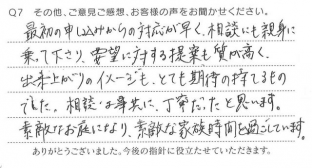 Q7 その他、ご意見ご感想、お客様の声をお聞かせください。
最初の申し込みからの対応が早く、相談にも親身に
乗って下さり、要望に対する提案も質が高く、
出来上がりのイメージも、とても期待の持てるもの
でした。相談は身共に、丁寧だったと思います。
素敵なお庭により、素敵な家族時間を過ごしています。
ありがとうございました。今後の指針に役立たせていただきます。